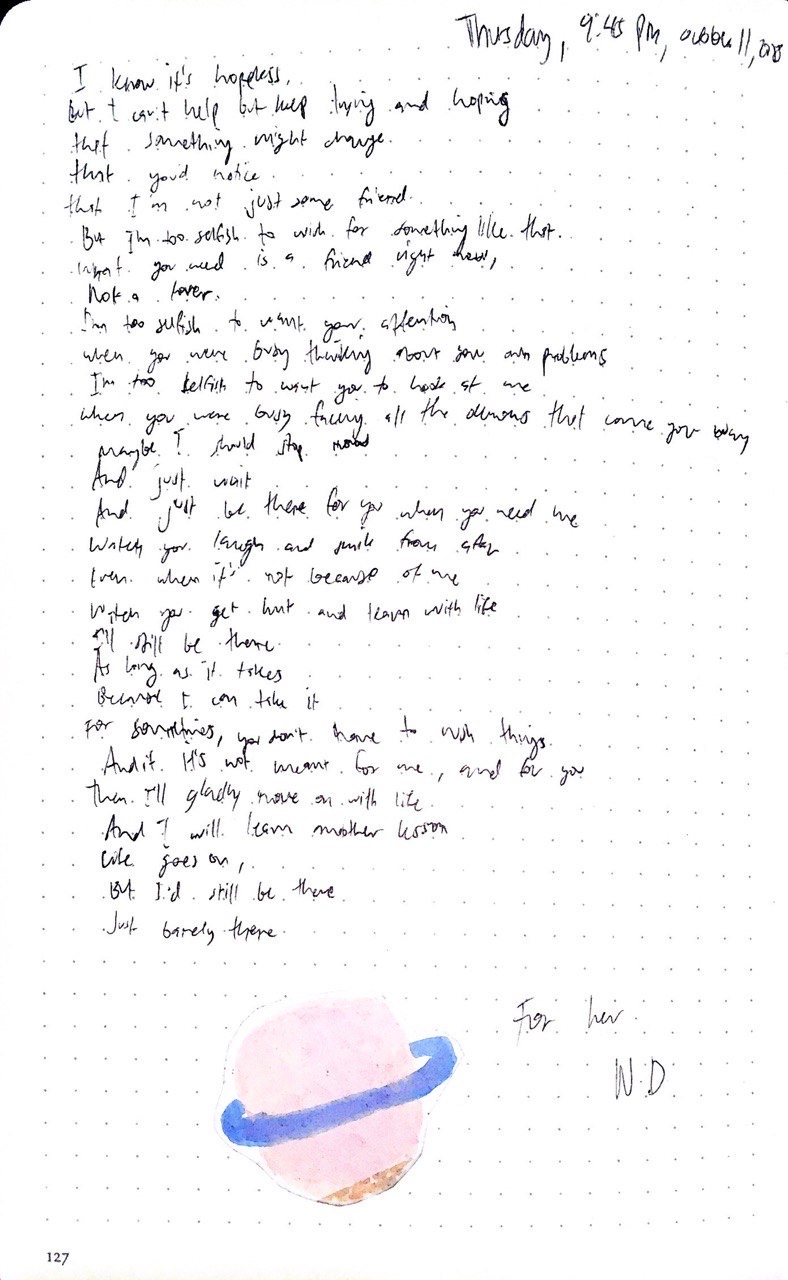 Thursday, 9:45 PM, October 11, 2018
I know it's hopeless,
But I can't help but keep trying and hoping
that something might change.
that you'd notice
that I'm not just some friend.
But I'm too selfish to wish for something like that.
what you need is a friend right now,
Not a lover.
I'm too selfish to want your attention
when you were busy thinking about your own problems
I'm too selfish to want you to look at me
when you were busy facing all the demons that came your way
maybe I should stop now
And just wait
And just be there for you when you need me
Watch you laugh and smile from afar
Even when it's not because of me
Watch you get hurt and learn with life
I'll still be there.
As long as it takes
Because I can take it
For sometimes, you don't have to rush things
And if it's not meant for me, and for you
then I'll gladly move on with life
And I will learn another lesson
Life goes on,
But I'd still be there
Just barely there.
For her.
N.D
127